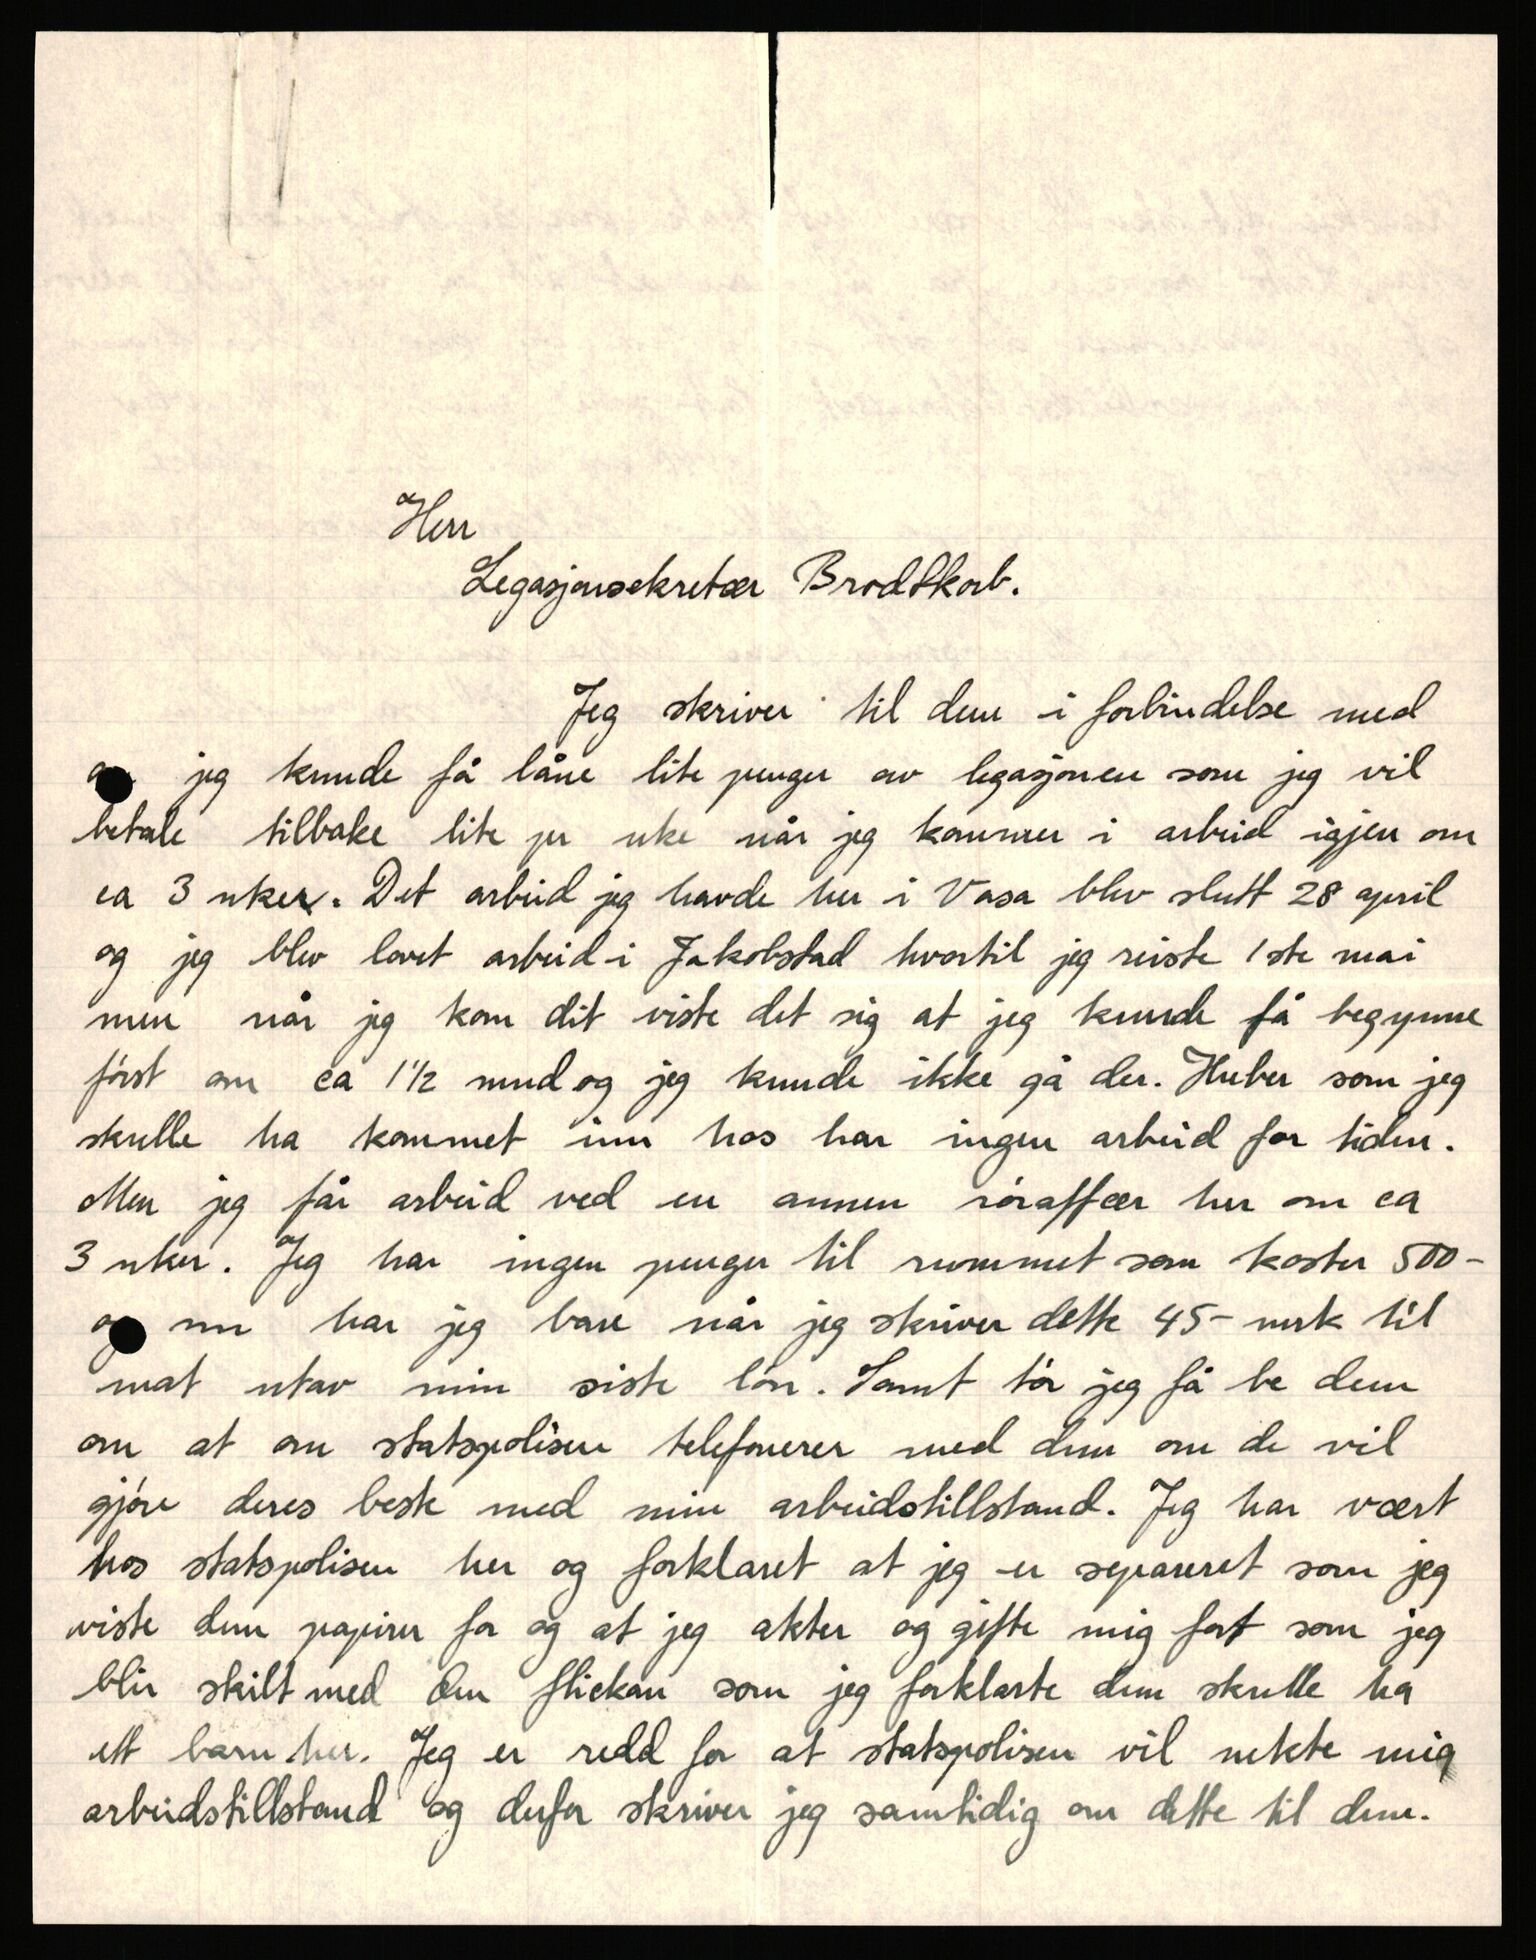 Herr
Legasjonsekretær Brodtkorb.
Jeg skriver til dem i forbindelse med
om jeg kunde få låne lite penger av legasjonen som jeg vil
betale tilbake lite pr uke når jeg kommer i arbeid igjen om
ca 3 uker. Det arbeid jeg havde her i Vasa blev slutt 28 april
og jeg blev lovet arbeid i Jakobstad hvortil jeg reiste 1ste mai
men når jeg kom dit viste det sig at jeg kunde få begynne
först om ca 1½ mnd og jeg kunde ikke gå der. Huber som jeg
skulle ha kommet inn hos har ingen arbeid for tiden.
Men jeg får arbeid ved en annen röraffær her om ca
3 uker. Jeg har ingen penger til rummet som koster 500-
og nu har jeg bare når jeg skriver dette 45- mrk til
mat utav min siste lön. Samt tör jeg få be dem
om at om statspolisen telefonerer med dem om de vil
gjöre deres beste med min arbeidstillstand. Jeg har vært
hos statspolisen her og forklaret at jeg er separeret som jeg
viste dem papirer for og at jeg akter og gifte mig fort som jeg
blir skilt med den flickan som jeg forklarte dem skulle ha
ett barn her. Jeg er redd for at statspolisen vil nekte mig
arbeidstillstand og derfor skriver jeg samtidig om dette til dem.